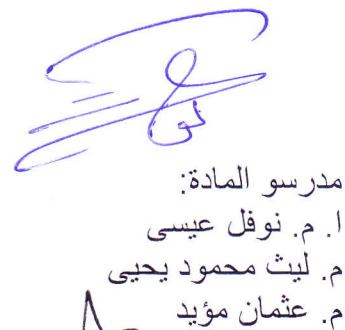 مدرسو المادة:
ا. م. نوفل عيسى
م. ليث محمود يحيى
م. عثمان مؤيد